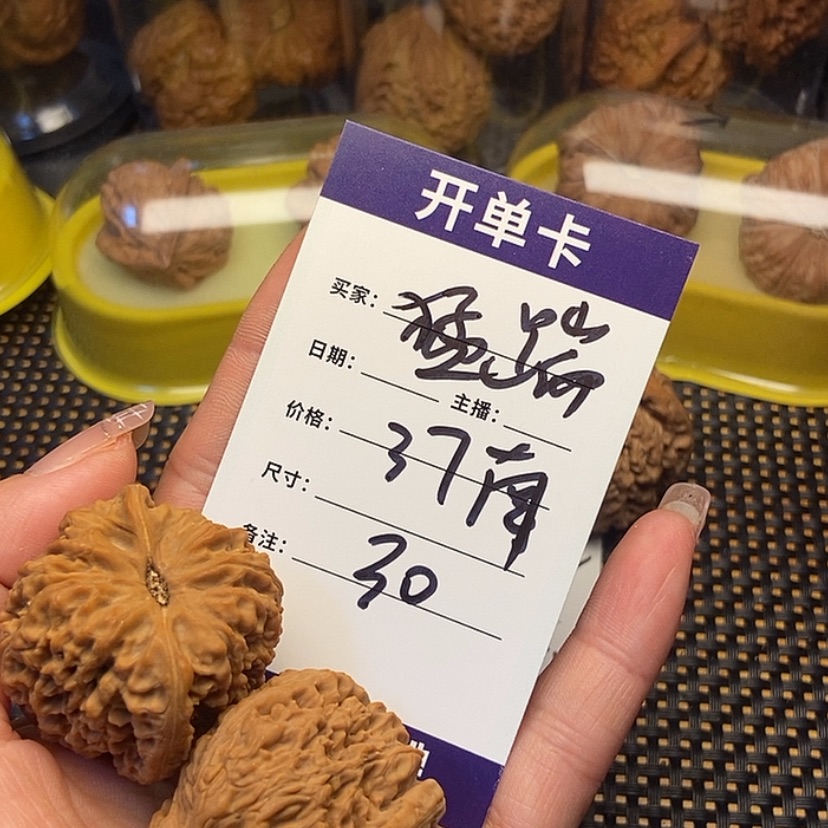 开单卡
买家：猛
日期： 主播：
价格：37南
尺寸：
备注：30